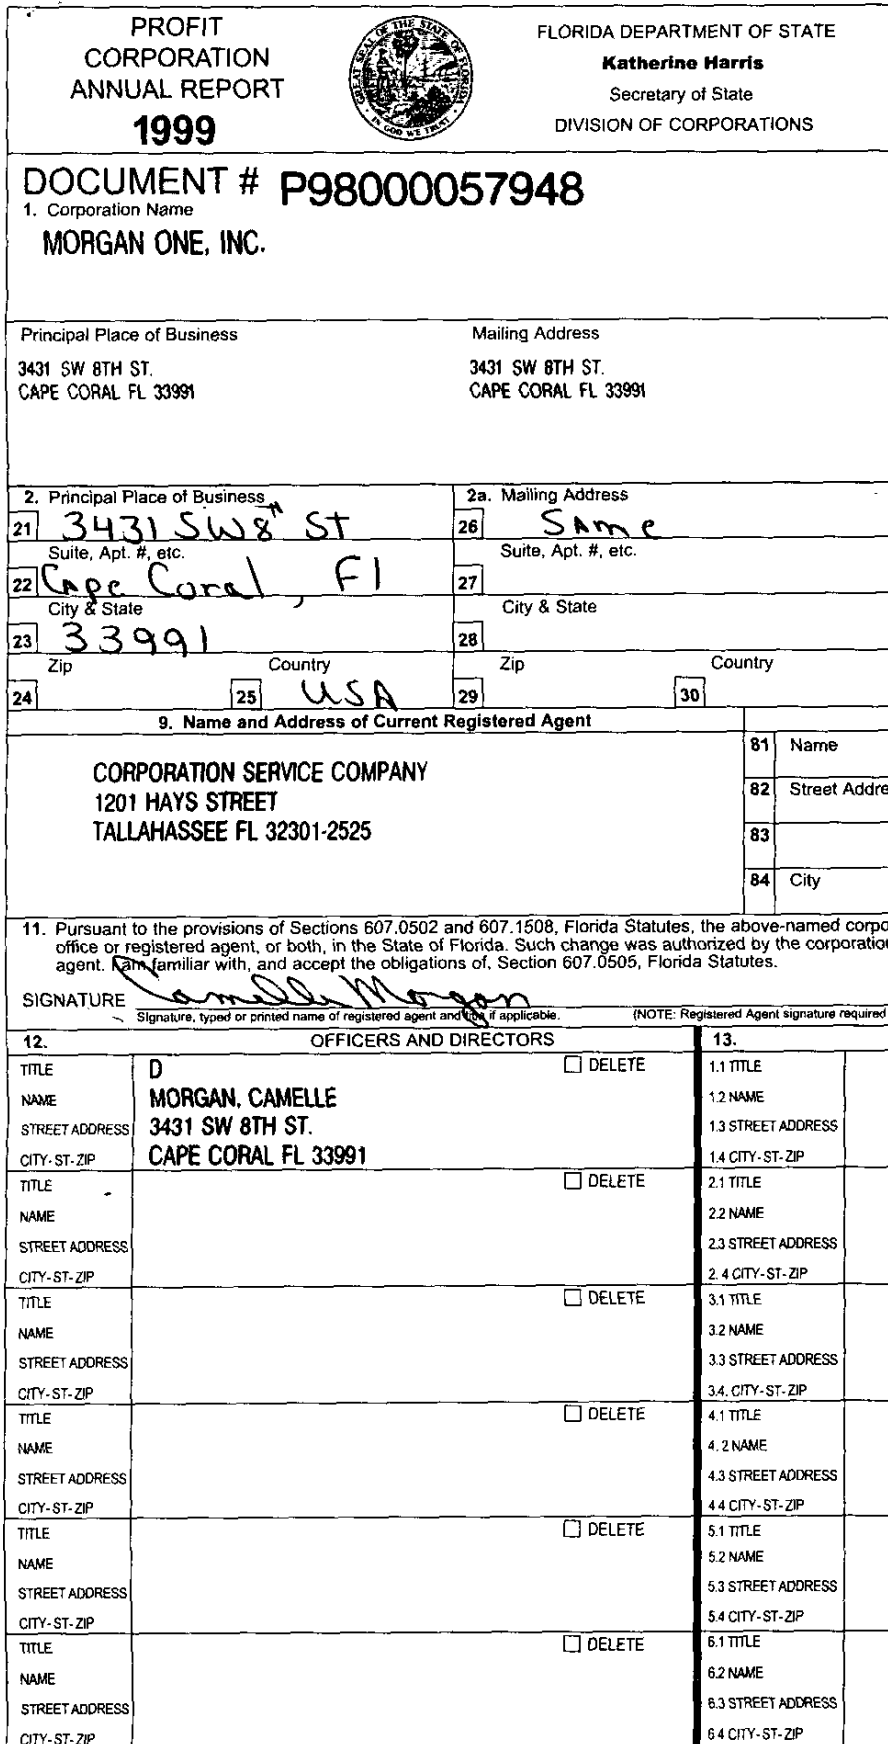 PROFIT
CORPORATION
ANNUAL REPORT
1999
GREAT SEAL OF THE STATE OF FLORIDA
IN GOD WE TRUST
FLORIDA DEPARTMENT OF STATE
Katherine Harris
Secretary of State
DIVISION OF CORPORATIONS
DOCUMENT # P98000057948
1. Corporation Name
MORGAN ONE, INC.
Principal Place of Business
3431 SW 8TH ST.
CAPE CORAL FL 33991
Mailing Address
3431 SW 8TH ST.
CAPE CORAL FL 33991
2. Principal Place of Business
21 3431 SW 8TH St
Suite, Apt. #, etc.
22 Cape Coral, Fl
City & State
23 33991
Zip Country
24 25 USA
2a. Mailing Address
26 Same
Suite, Apt. #, etc.
27
City & State
28
Zip Country
29 30
9. Name and Address of Current Registered Agent
CORPORATION SERVICE COMPANY
1201 HAYS STREET
TALLAHASSEE FL 32301-2525
81 Name
82 Street Addre
83
84 City
11. Pursuant to the provisions of Sections 607.0502 and 607.1508, Florida Statutes, the above-named corpo
office or registered agent, or both, in the State of Florida. Such change was authorized by the corporatio
agent. I am familiar with, and accept the obligations of, Section 607.0505, Florida Statutes.
SIGNATURE Camelle Morgan
Signature, typed or printed name of registered agent and title if applicable. (NOTE: Registered Agent signature required
12. OFFICERS AND DIRECTORS 13.
TITLE D DELETE 1.1 TITLE
NAME MORGAN, CAMELLE 1.2 NAME
STREET ADDRESS 3431 SW 8TH ST. 1.3 STREET ADDRESS
CITY-ST-ZIP CAPE CORAL FL 33991 1.4 CITY-ST-ZIP
TITLE DELETE 2.1 TITLE
NAME 2.2 NAME
STREET ADDRESS 2.3 STREET ADDRESS
CITY-ST-ZIP 2.4 CITY-ST-ZIP
TITLE DELETE 3.1 TITLE
NAME 3.2 NAME
STREET ADDRESS 3.3 STREET ADDRESS
CITY-ST-ZIP 3.4. CITY-ST-ZIP
TITLE DELETE 4.1 TITLE
NAME 4.2 NAME
STREET ADDRESS 4.3 STREET ADDRESS
CITY-ST-ZIP 4.4 CITY-ST-ZIP
TITLE DELETE 5.1 TITLE
NAME 5.2 NAME
STREET ADDRESS 5.3 STREET ADDRESS
CITY-ST-ZIP 5.4 CITY-ST-ZIP
TITLE DELETE 6.1 TITLE
NAME 6.2 NAME
STREET ADDRESS 6.3 STREET ADDRESS
CITY-ST-ZIP 6.4 CITY-ST-ZIP